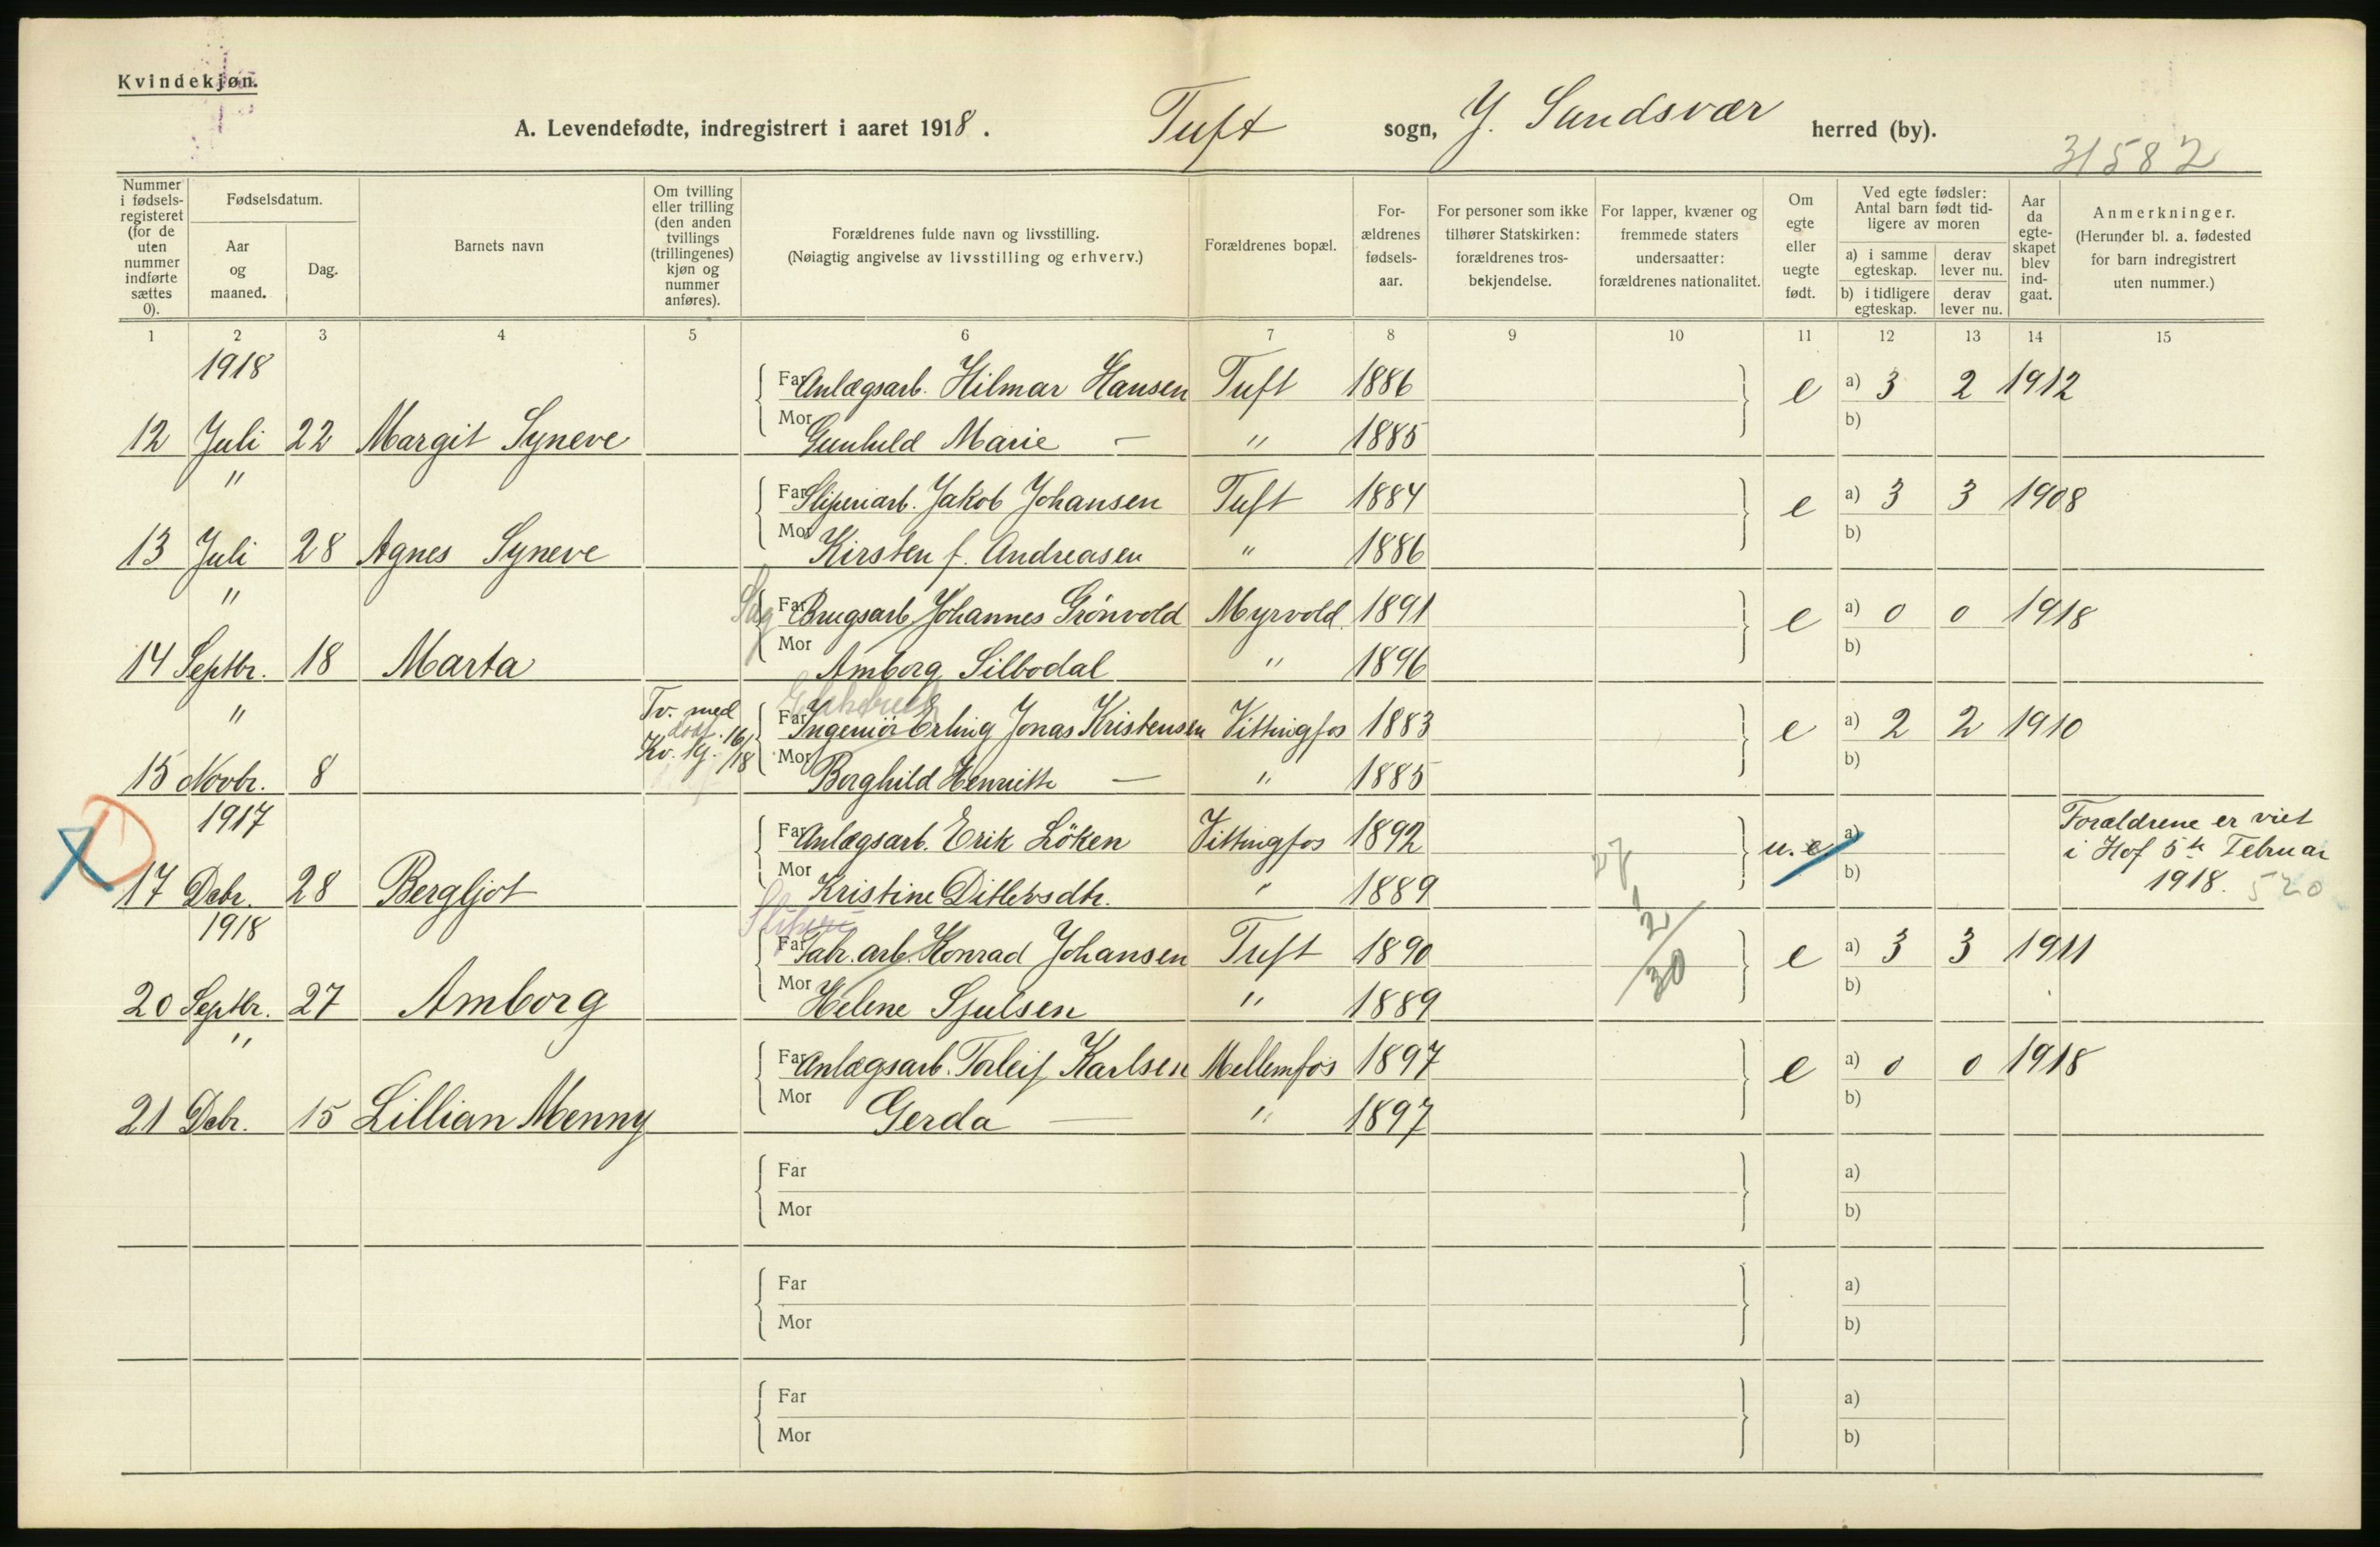 Kvindekjøn.
A. Levendefødte, indregistrert i aaret 1918. Tuft sogn, Y. Sandsvær herred (by).
31582
Nummer i fødselsregisteret (for de uten nummer indførte sættes 0).
Fødselsdatum.
Aar og maaned.
Dag.
Barnets navn
Om tvilling eller trilling (den anden tvillings (trillingenes) kjøn og nummer anføres).
Forældrenes fulde navn og livsstilling.
(Nøiagtig angivelse av livsstilling og erhverv.)
Forældrenes bopæl.
Forældrenes fødselsaar.
For personer som ikke tilhører Statskirken: forældrenes trosbekjendelse.
For lapper, kvæner og fremmede staters undersaatter: forældrenes nationalitet.
Om egte eller uegte født.
Ved egte fødsler: Antal barn født tidligere av moren
a) i samme egteskap. derav lever nu.
b) i tidligere egteskap. derav lever nu.
Aar da egteskapet blev indgaat.
Anmerkninger.
(Herunder bl. a. fødested for barn indregistrert uten nummer.)
1 2 3 4 5 6 7 8 9 10 11 12 13 14 15
1918
Far Anlægsarb. Hilmar Hansen Tuft 1886 e a) 3 2 1912
12 Juli 22 Margit Syneve Mor Gunhild Marie — " 1885 b)
" Far Sliperiarb. Jakob Johansen Tuft 1884 e a) 3 3 1908
13 Juli 28 Agnes Syneve Mor Kirsten f. Andreasen " 1886 b)
" Sag Far Brugsarb. Johannes Grönvold Myrvold 1891 e a) 0 0 1918
14 Septbr. 18 Marta Mor Amborg Silbodal " 1896 b)
" Tv. med dödf. Kv. kj. 16/18 Far Ingeniör Erling Jonas Kristensen Vittingfos 1883 e a) 2 2 1910
15 Novbr. 8 Mor Borghild Henriette — " 1885 b)
1917 Far Anlægsarb. Erik Löken Vittingfos 1892 u. e a) Forældrene er viet
17 Debr. 28 Bergljot Mor Kristine Ditlevsdtr. " 1889 27 b) i Hof 5te Februar
1918. 520
1918 Sliperi Far Fabr. arb. Konrad Johansen Tuft 1890 2/30 e a) 3 3 1911
20 Septbr. 27 Amborg Mor Helene Sjulsen " 1889 b)
" Far Anlægsarb. Torleif Karlsen Mellemfos 1897 e a) 0 0 1918
21 Debr. 15 Lillian Menny Mor Gerda — " 1897 b)
Far a)
Mor b)
Far a)
Mor b)
Far a)
Mor b)